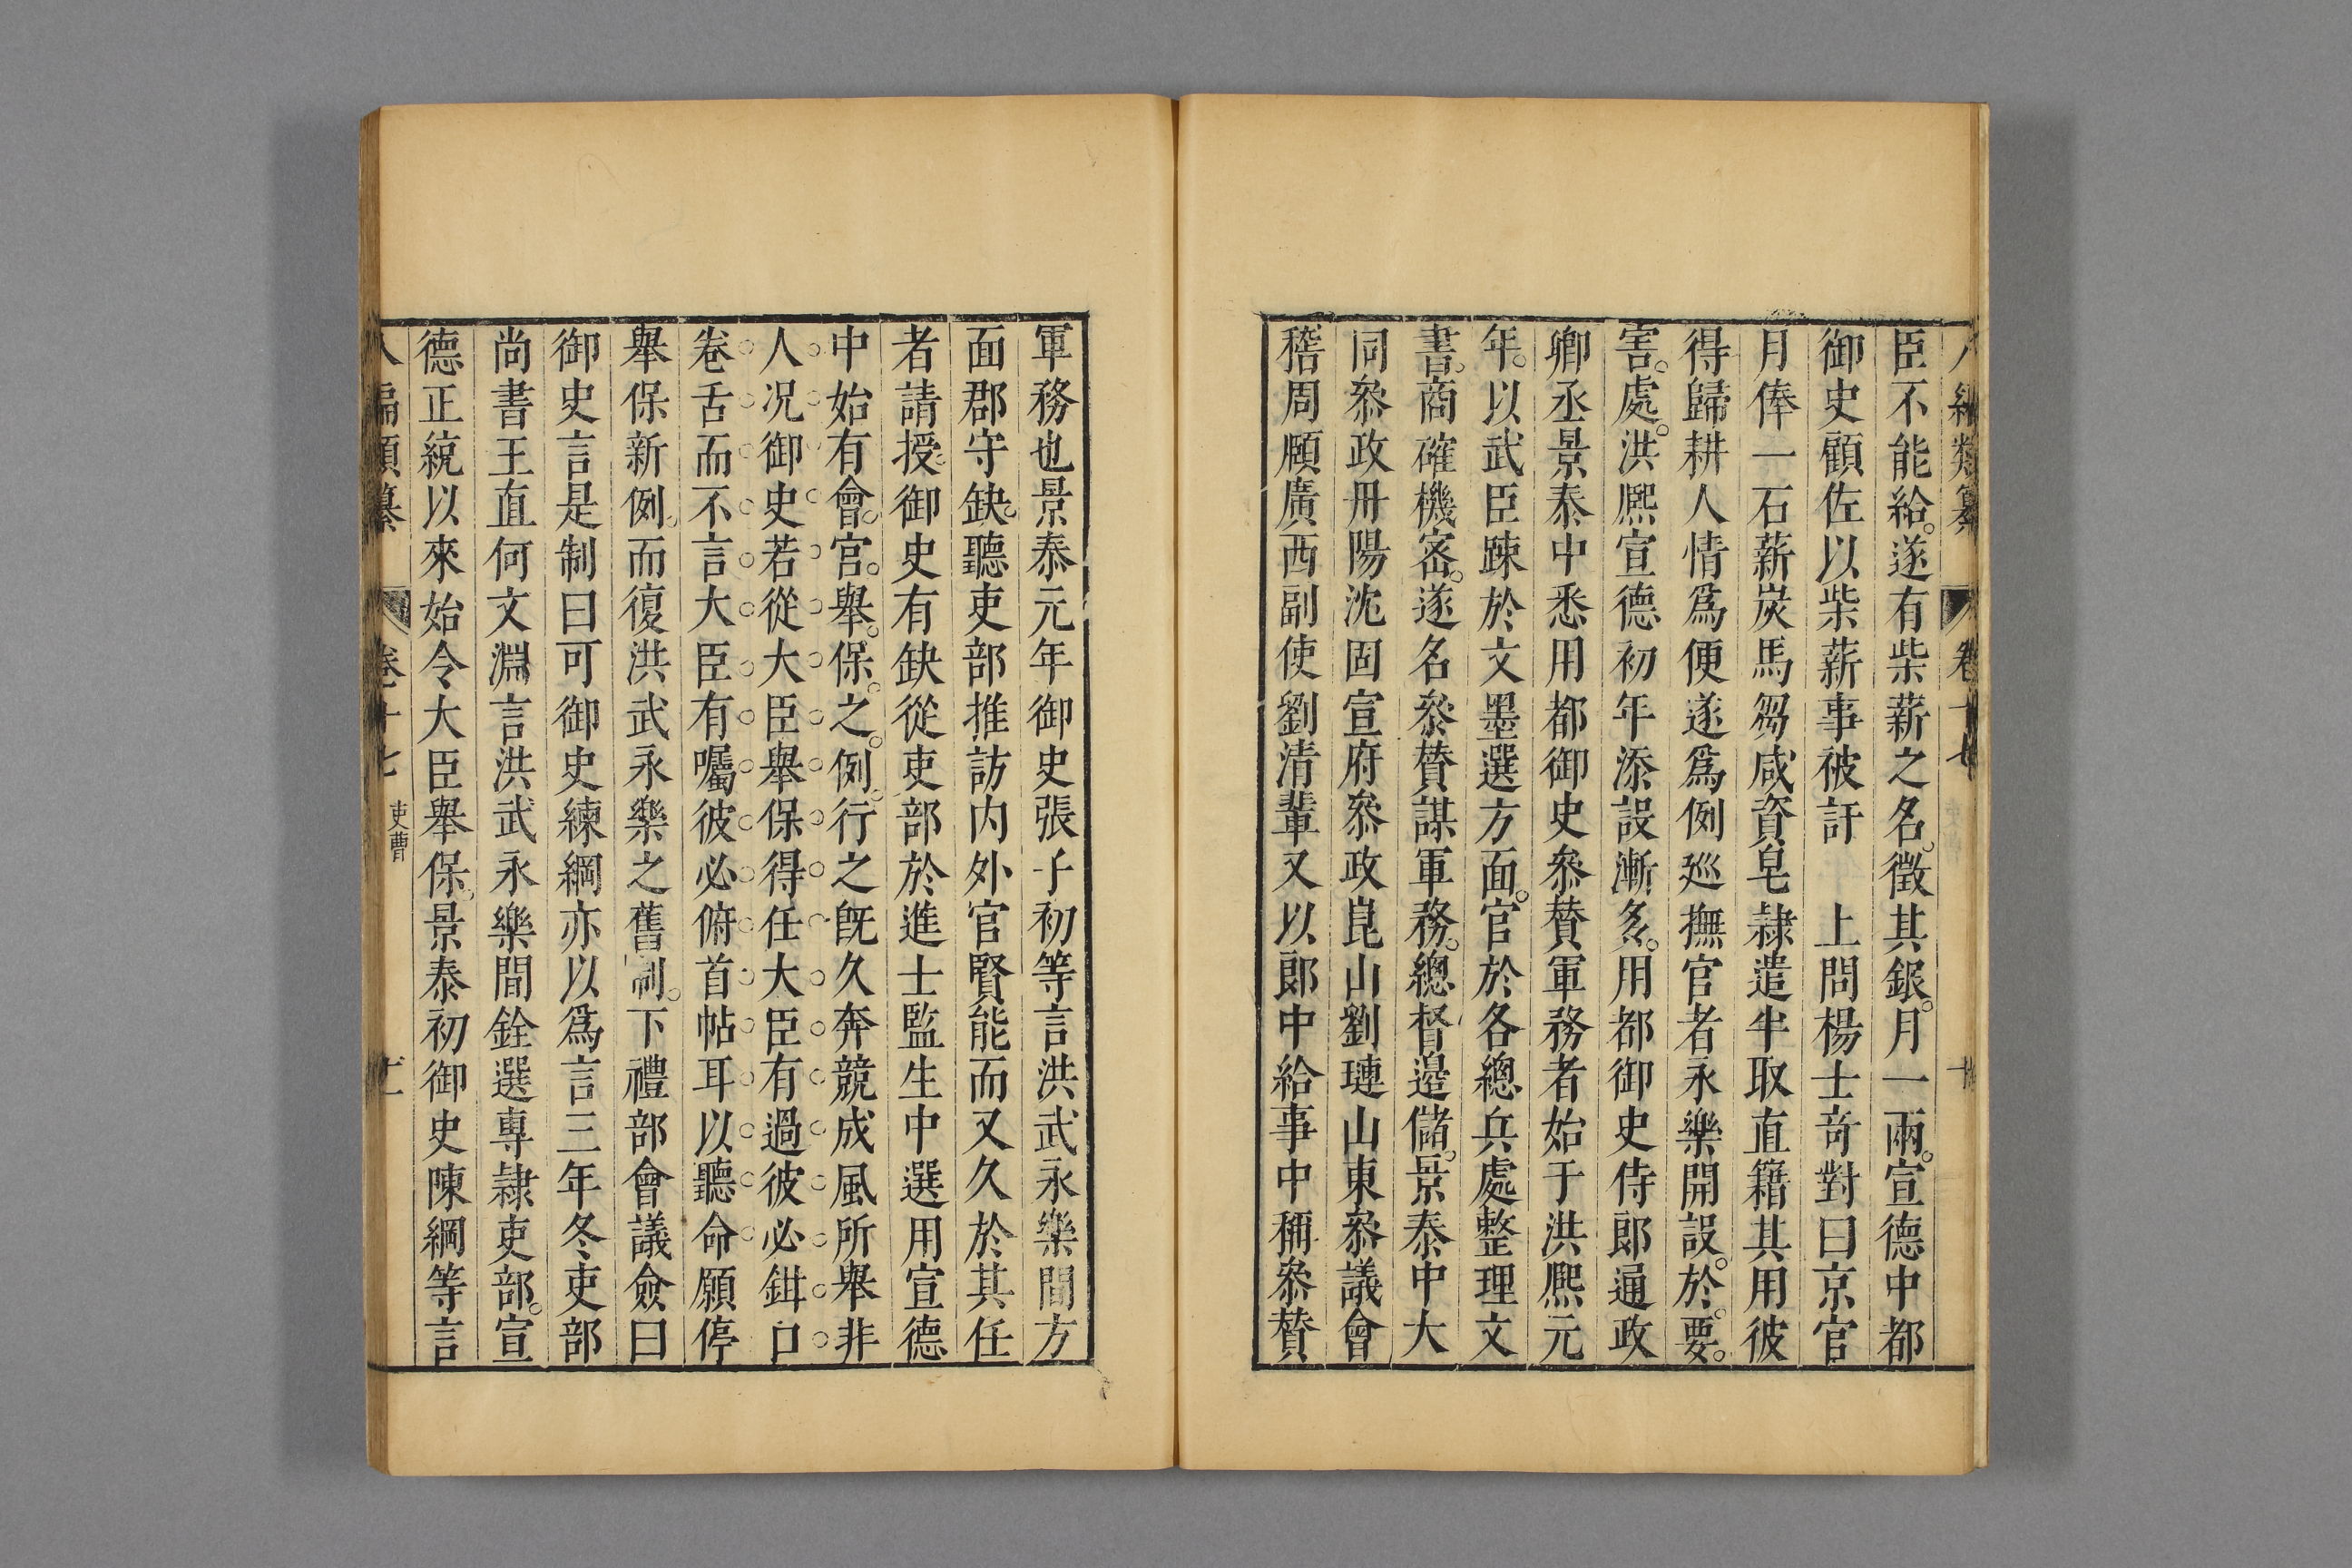 臣不能給。遂有柴薪之名。徵其銀。月一兩。宣德中都
御史顧佐以柴薪事被訐　上問楊士奇對曰京官
月俸一石薪炭馬芻咸資皂隷遣半取直籍其用彼
得歸耕人情爲便遂爲例廵撫官者永樂開設。於。要。
害。處。洪熈宣德初年添設漸多。用都御史侍郎通政
卿丞景泰中悉用都御史叅賛軍務者始于洪熈元
年。以武臣踈於文墨選方面。官於各總兵處整理文
書。商確機宻。遂名叅賛謀軍務。總督邉儲。景泰中大
同叅政丹陽沈固宣府叅政崑山劉璉山東叅議會
稽周頤廣西副使劉清輩又以郎中給事中稱叅賛
軍務也景泰元年御史張子初等言洪武永樂間方
面郡守缺。聽吏部推訪内外官賢能而又久於其任
者請授。御史有缺從吏部於進士監生中選用宣德
中始有會。官。舉。保。之。例。行之旣久奔競成風所舉非
人况御史若從大臣舉保得任大臣有過彼必鉗口
卷舌而不言大臣有囑彼必俯首帖耳以聽命願停
舉保新例。而復洪武永樂之舊制。下禮部會議僉曰
御史言是制曰可御史練綱亦以爲言三年冬吏部
尚書王直何文淵言洪武永樂間銓選專隷吏部。宣
德正統以來始令大臣舉保。景泰初御史陳綱等言
編類纂　卷十七　吏曹